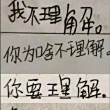 我不理解。
你为啥不理解。
你要理解